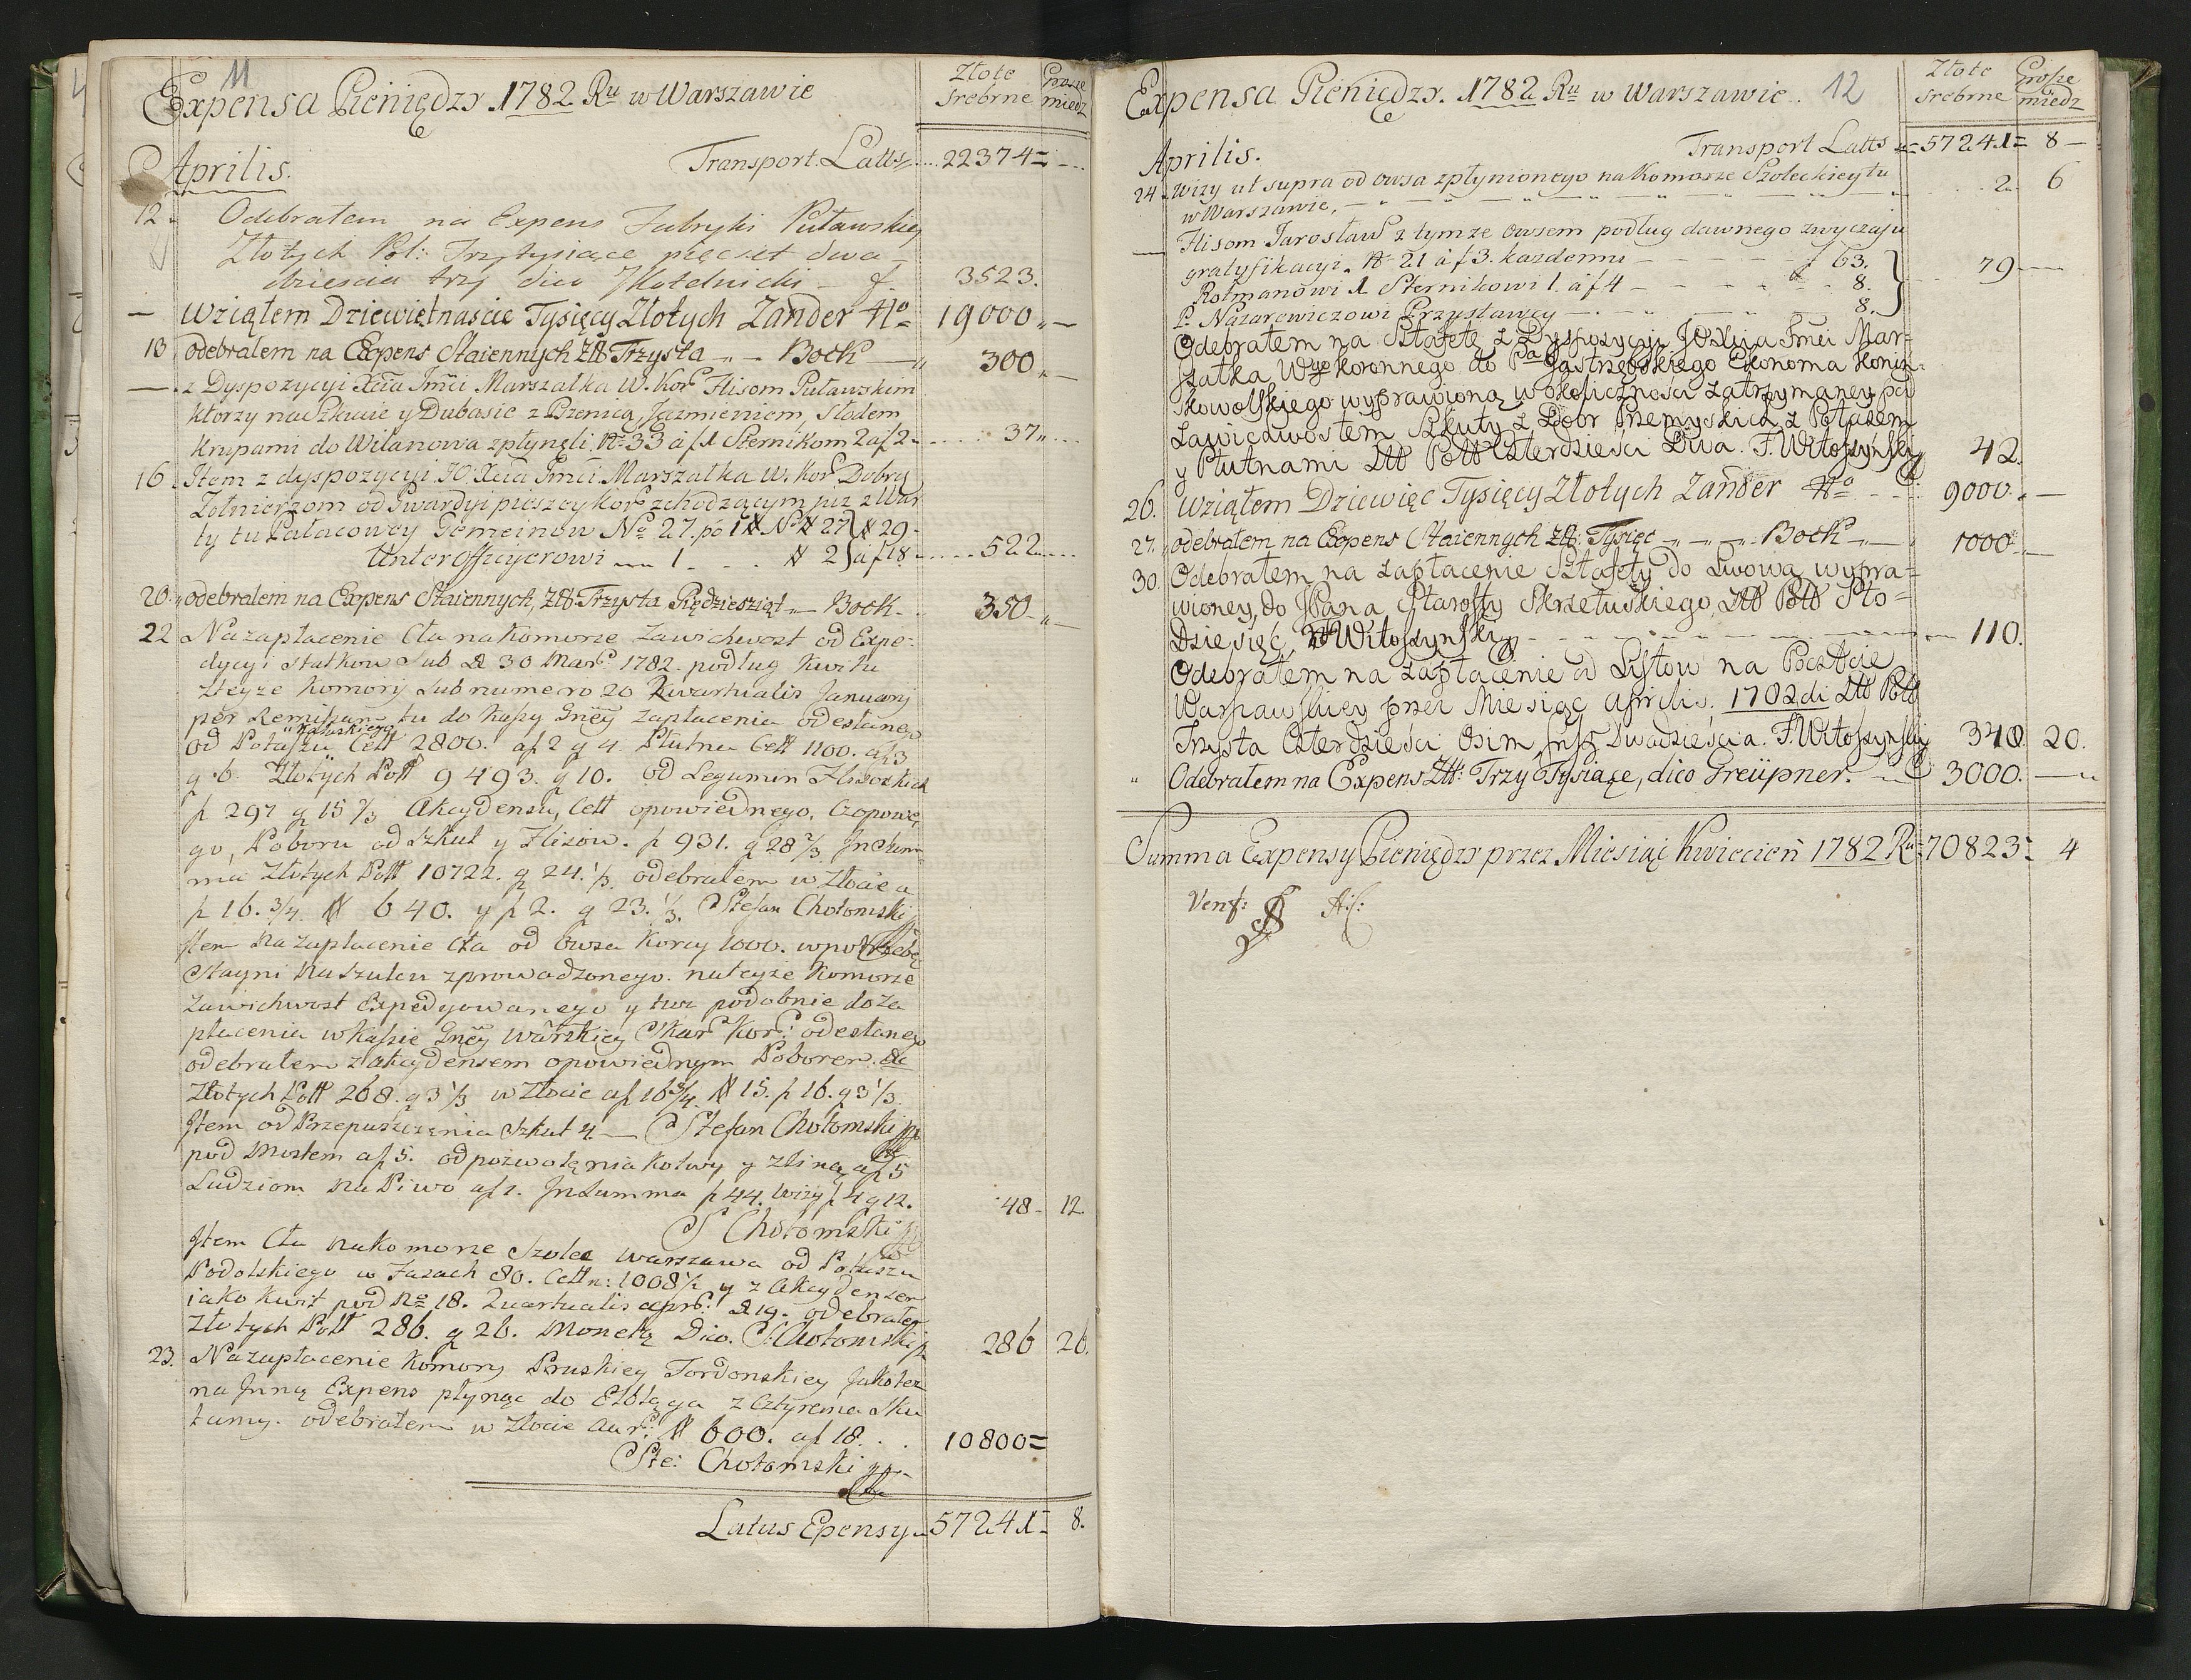 11
Expensa Pieniędzy 1782 Ru w Warszawie
Złote Grosze
srebrne miedz
Aprilis. Transport Latts 22374=
12. Odebrałem na Expens Fabryki Puławskiey
Złotych Pol: Trzytysiące pięcset dwa-
dziescia trzy dico f. 3523.
— Wziąłem Dziewiętnascie Tysięcy Złotych Zander No 19000 „ —
13 odebrałem na Expens Staiennych Złł Trzysta „ - Bock — 300 „ —
— z Dyspozycyi Xcia Jmci Marszałka W. Kor Flisom Puławskim
ktorzy na Szkucie y Dubasie z Pszenicą, Jęzmieniem, Słodem
krupami do Wilanowa zpłynęli No 33 a f 1 Sternikom 2 a f 2 37 „
16 Item z dyspozycyi JO Xcia Jmci Marszałka W. Kor Dobry
Zołnierzom od Gwardyi pieszey kor zchodzącym juz z War
ty tu Pałacowey Gemeinow No 27. po 1 # No # 27 } # 29 -
Unterofficyerowi 1. # 2 } a f 18 522
20 „ odebrałem na Expens Staiennych, Złł Trzysta Pięcdziesiąt „ Bock 350 „ —
22 Na zapłacenie Cła na Komorze Zawichwost od Expe-
dycyi statkow sub d 30 Mar: 1782. podług Kwitu
zteyze Komory sub numero 20 Kwartualis Januarij
per Remissam tu do Kassy Gney zapłacenia odesłanego
od Potaszu Cett 2800. af 2 g 4. Płutna Cett 1100. af 3
g 6. Złotych Poll 9493. g 10. od Legumin Flisowkich
f 297 g 15 2/3 Akcydensu, Cett opowiednego, Czopowe
go, Poboru od szkut y Flisow. f 931. g 28 2/3 In Sum
ma Złotych Poll 10722. g 24. 1/3. odebrałem w złocie a
f 16. 3/4. # 640. y f 2. g 23. 1/3. Stefan Chołomski
Item na zapłacenie Cła od Owsa Korcy 1000. w potrzebę
Stayni na Szulcu zprowadzonego. na teyze Komorze
Zawichwost Expedyowanego y tu podobnie do Za
płacenia w Kassie Gney Warskiey Skar Kor: odesłanego
odebrałem z akcydensem opowiednym Poborem &c
Złotych Poll 268. g 3 1/3 w złocie af 16 3/4. # 15. f 16. g 3 1/3.
Item od Przepuszczenia szkut 4. — Stefan Chołomski
pod Mostem af 5. od pozwolenia Kotwy y z liną af 5
Ludziom na Piwo af 1. In Summa f 44. wizy f 4 g 12. 48 - 12.
S Chołomski
Item Cła na komorze Szolec Warszawa od Potaszu
Podolskiego w Fasach 80. Cettn: 1008 1/2 y z Akcydensem
iako Kwit pod No 18. Quartualis apr: d 19. odebrałem
złotych Poll 286. g 26. Monetą Dico. S: Chołomski 286 26.
23. Na zapłacenie Komory Pruskiey Fordonskiey Jakotez
na Jnną Expens płynąc do Elbląga z Cztyrema Szku
tamy. odebrałem w złocie aur: # 600. af 18. 10800=
Ste: Chołomski
Latus Epensy 57241= 8.
Expensa Pieniędzy. 1782 Ru w Warszawie. 12
Złote Grosze
srebrne miedz
Aprilis. Transport Latts 57241= 8 —
24. Wizy ut supra od owsa zpłynionego na Komorze Szoleckiey tu
w Warszawie, 2. 6
— Flisom Jarosław z tymze owsem podług dawnego zwyczaju
gratyfikacyi. No 21 a f 3. kazdemu f 63.
Rotmanowi 1 Sternikowi 1. a f 4 8. } 79
P. Nazarewiczowi Przystawcy 8.
Odebrałem na Sztafetę z Dyspozycyi JOXcia Jmci Mar-
szałka Wgo koronnego do Pa Jastrzębskiego Ekonoma Konin-
skowolskiego wyprawioną w okoliczności zatrzymaney pod
Zawichwostem Szkuty z Dobr Przemyskich z Potaszem
y Płutnami Złł Poll Czterdzieści Dwa. F. Witoszyński 42.
26. Wziąłem Dziewięc Tysięcy Złotych Zander No 9000. „ —
27. odebrałem na Expens Staiennych Złł: Tysięc „ Bock 1000 „ —
30. Odebrałem na zapłacenie Sztafety do Lwowa wypra-
wioney, do JPana Starosty Skrzetuskiego, Złł Poll Sto-
Dziesięć, F Witoszyński 110.
Odebrałem na zapłacenie od Listow na Poczcie
Warszawskiey przez Miesiąc Aprilis. 1782 di Złł Poll
Trzysta Czterdzieści Osim, gr Dwadzieścia. F. Witoszyński 348. 20.
„ Odebrałem na Expens Złł: Trzy Tysiące, dico Greüpner. 3000. —
Summa Expensy Pieniędzy przez Miesiąc Kwiecień 1782 Ru 70823= 4
Verif: